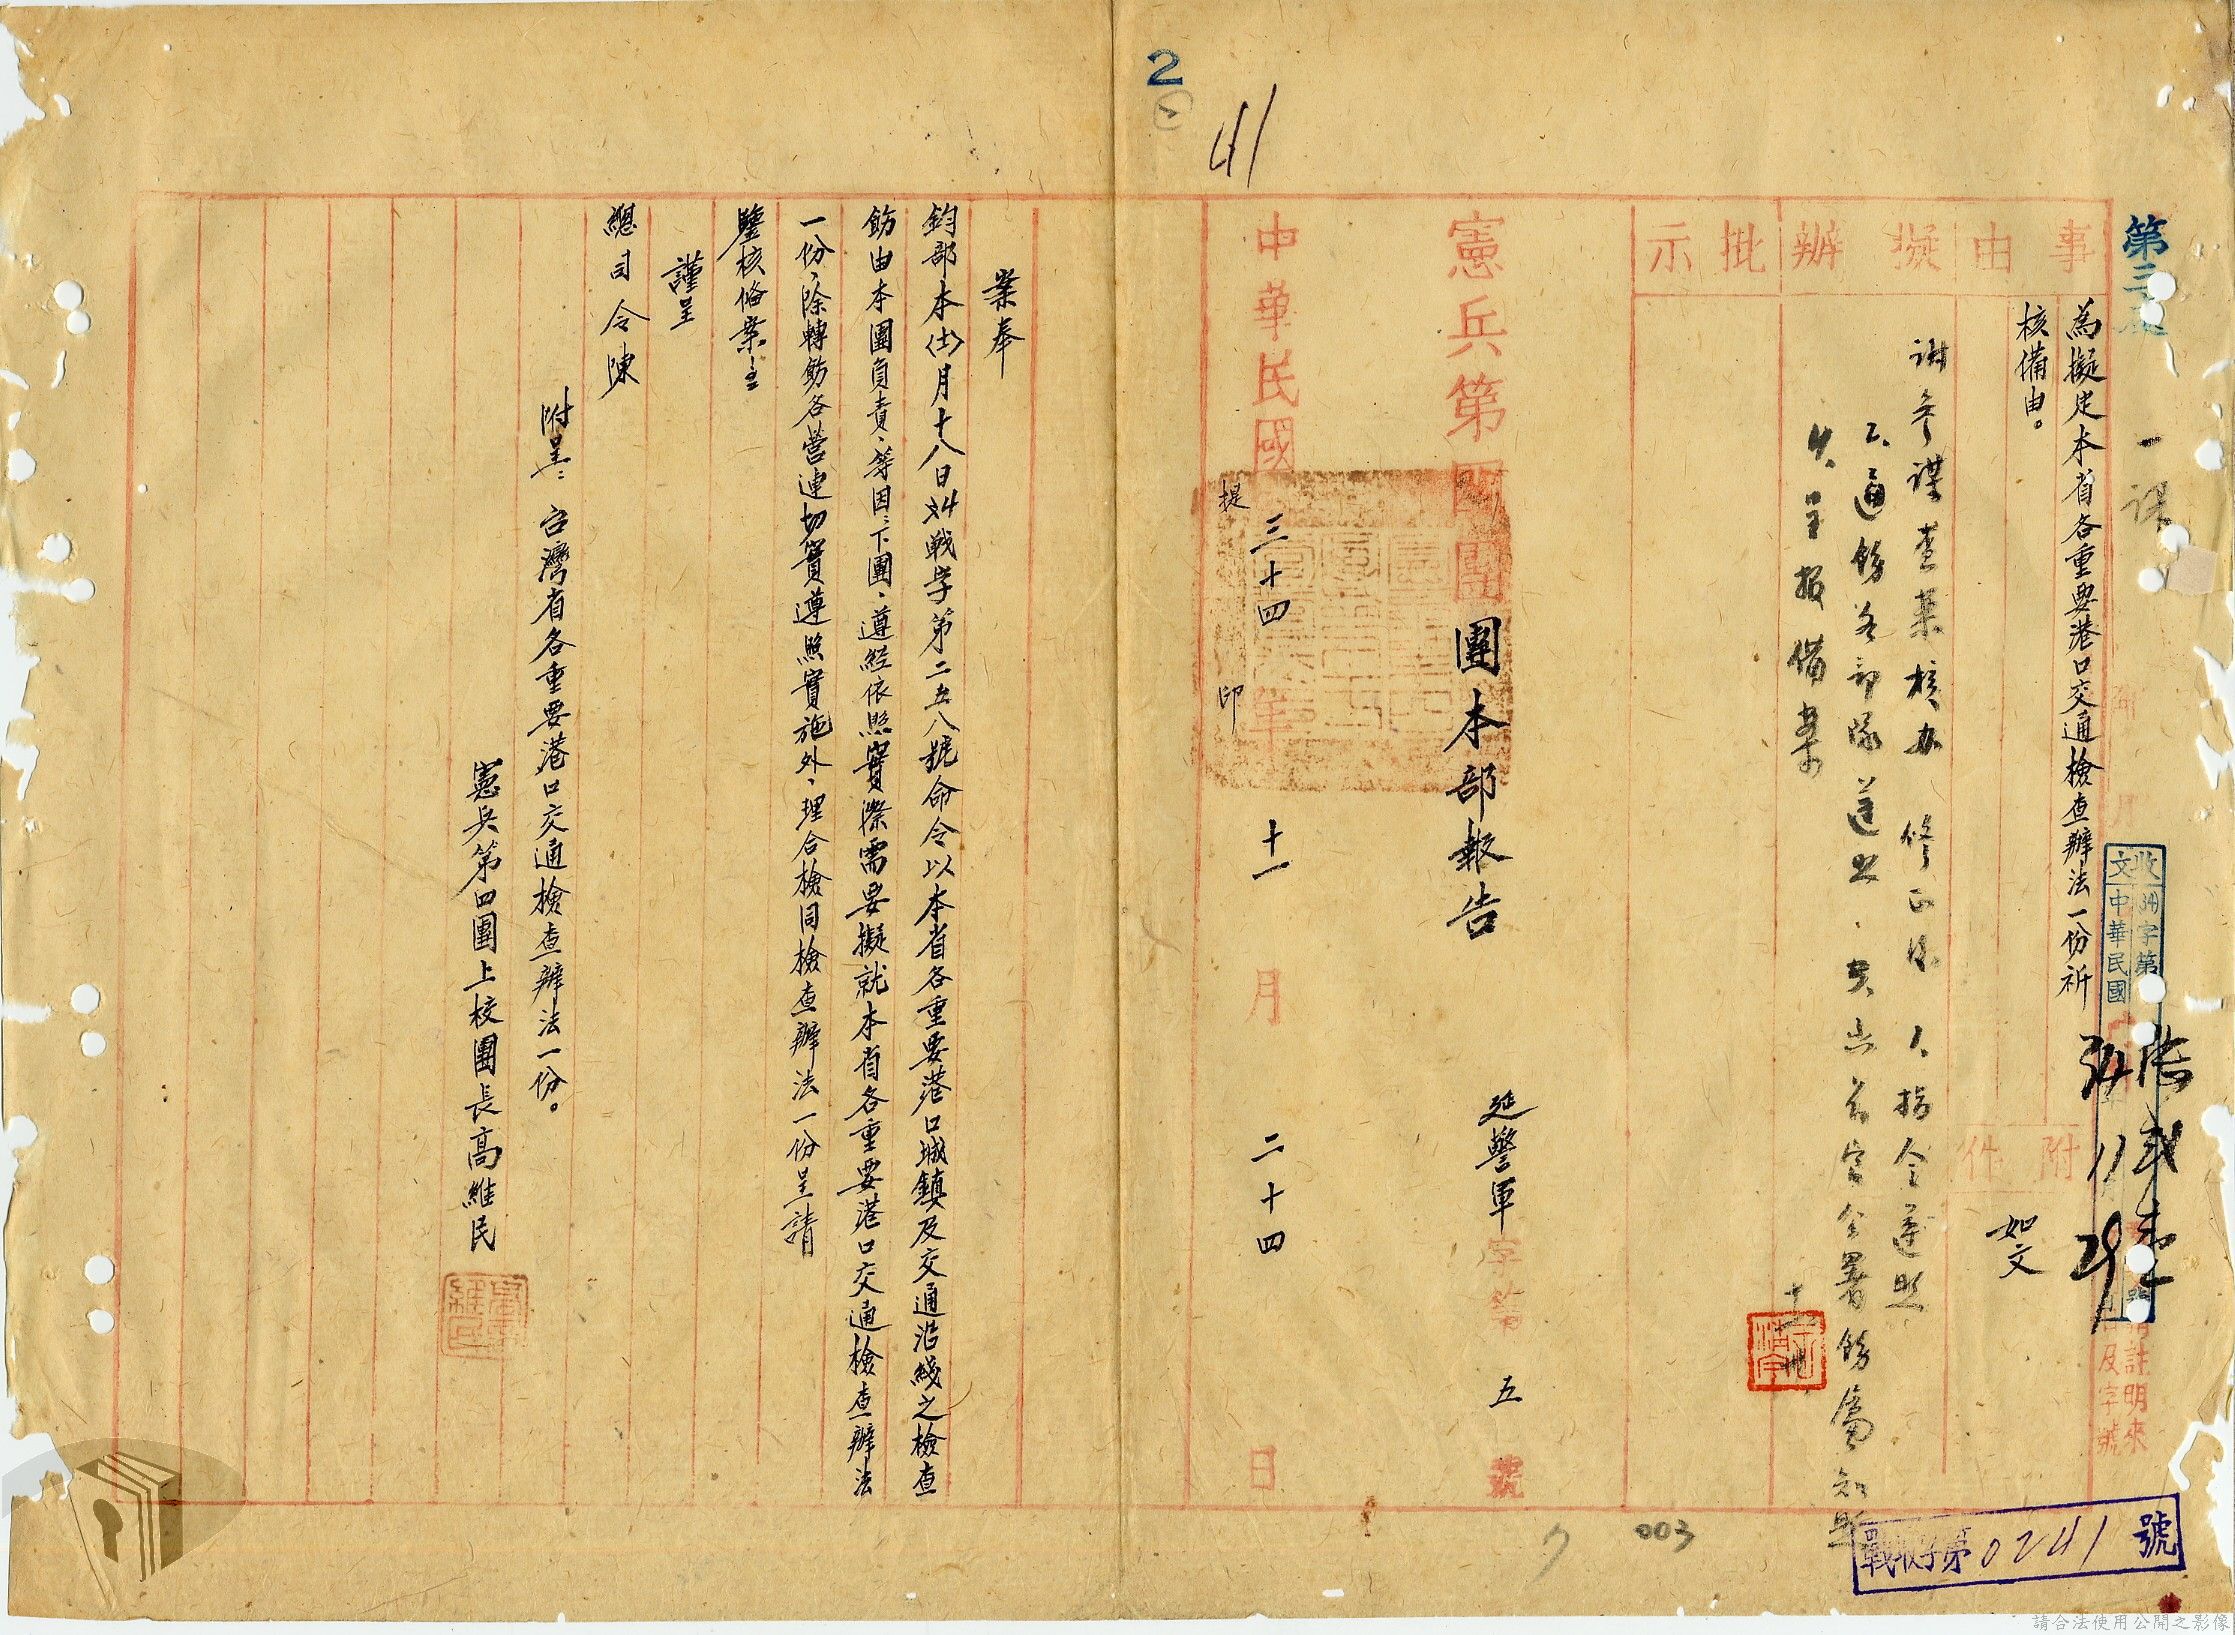 2
41
第三處
一課
事由
擬辦
批示
為擬定本省各重要港口交通檢查辦法一份祈
核備由。
附件
如文
謝參謀查案核办 修正後 1、指令遵照
2、通飭各部隊遵照
呈報備案
憲兵第四團團本部報告
延警軍字第 五 號
中華民國三十四年十一月二十四日
提 印
案奉
鈞部本(十一)月十八日戰字第二五八號命令以本省各重要港口城鎮及交通沿綫之檢查
飭由本團負責、等因；下團、遵經依照實際需要擬就本省各重要港口交通檢查辦法
一份、除轉飭各營連切實遵照實施外、理合檢同檢查辦法一份呈請
鑒核俻案！
謹呈
總司令陳
附呈：台灣省各重要港口交通檢查辦法一份。
憲兵第四團上校團長高維民
收文 字第
中華民國
34 11 29
註明來
及字號
戰收字第0241號
003
請合法使用公開之影像